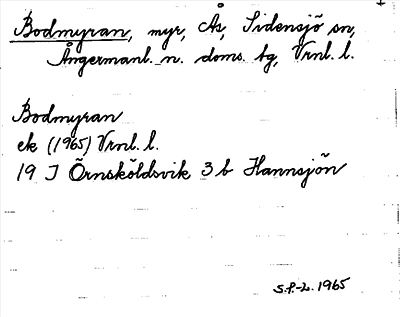 Bodmyran, myr, Ås, Sidensjö sn,
Ångermanl. n. doms. bg, Vrnl. l.
Bodmyran
ek (1965) Vrnl. l.
19 I Örnsköldsvik 3 b Hannsjön
S.P.-L. 1965